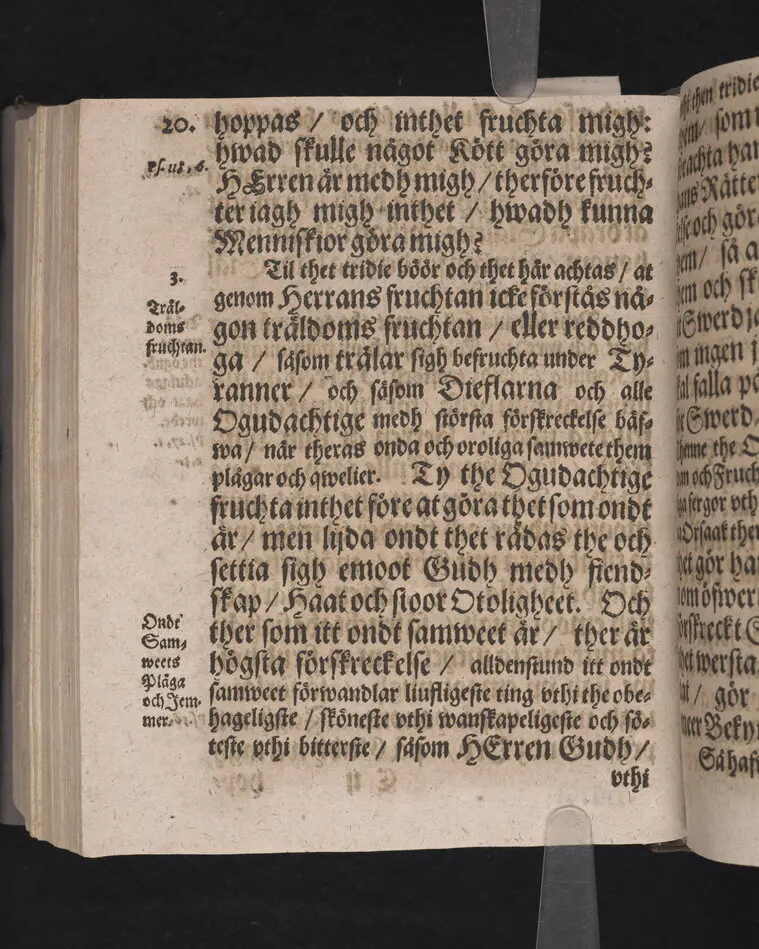 20. hoppas / och inthet fruchta migh:
Ps. 118, 6. hwad skulle något Kött göra migh?
HErren är medh migh / therföre fruch-
ter iagh migh inthet / hwadh kunna
Menniskior göra migh?
3. Til thet tridie böör och thet här achtas / at
genom Herrans fruchtan icke förstås nå-
Träl-
doms
fruchtan.
gon träldoms fruchtan / eller reddho-
ga / såsom trälar sigh befruchta under Ty-
ranner / och såsom Dieflarna och alle
Ogudachtige medh största förskreckelse bäf-
wa / när theras onda och oroliga samwete them
plågar och qwelier. Ty the Ogudachtige
fruchta inthet före at göra thet som ondt
är / men lijda ondt thet rådas the och
settia sigh emoot Gudh medh fiend-
skap / Haat och stoor Otoligheet. Och
Ondt
Sam-
weets
Plåga
och Jem-
mer.
ther som itt ondt samweet är / ther är
högsta förskreckelse / alldenstund itt ondt
samweet förwandlar liufligeste ting vthi the obe-
hageligste / sköneste vthi wanskapeligeste och sö-
teste vthi bitterste / såsom HErren Gudh /
vthi